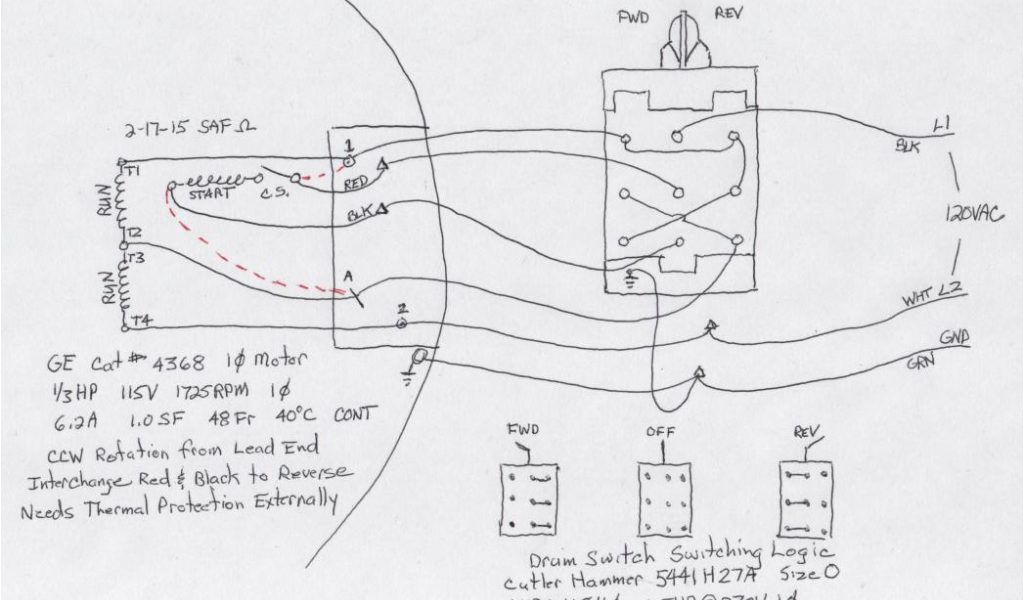 FWD REV
2-17-15 SAF Ω
L1
BLK
1
T1
RED
START C.S.
RUN
BLK
120VAC
T2
T3
RUN
A
WHT L2
T4
2
GND
GRN
GE Cat# 4368 1ϕ Motor
1/3HP 115V 1725RPM 1ϕ
6.2A 1.0SF 48Fr 40°C CONT
CCW Rotation from Lead End
Interchange Red & Black to Reverse
Needs Thermal Protection Externally
FWD OFF REV
Drum Switch Switching Logic
Cutler Hammer 5441H27A Size 0